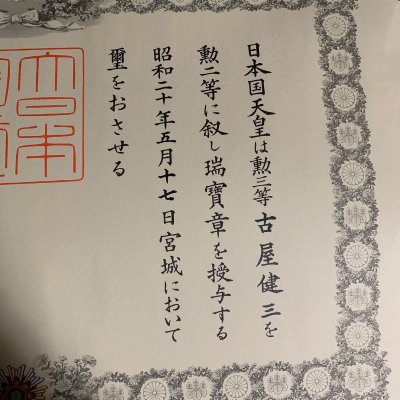 日本国天皇は勲三等古屋健三を
勲二等に叙し瑞寶章を授与する
昭和二十年五月十七日宮城において
璽をおさせる
大日本